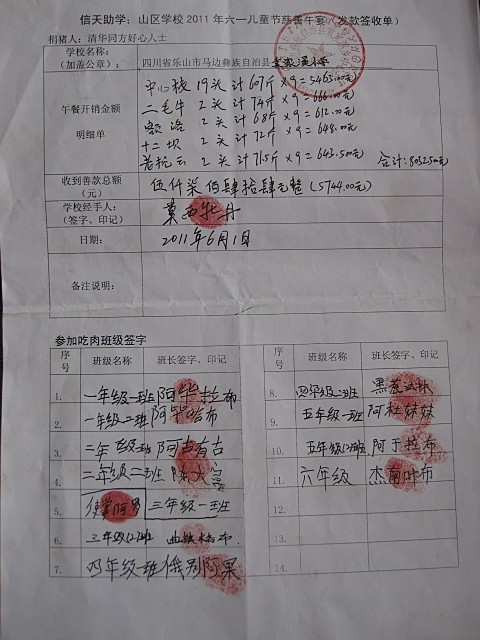 信天助学：山区学校 2011 年六一儿童节慈善午宴（发款签收单）
捐猪人：清华同方好心人士
学校名称：
（加盖公章）：
四川省乐山市马边彝族自治县
午餐开销金额
明细单
中心校 19头 计 607斤 ×9=5463.00元
二毛牛 2头 计 74斤 ×9=666.00元
2头 计 68斤 ×9=612.00元
十二坝 2头 计 72斤 ×9=648.00元
2头 计 71.5斤 ×9=643.50元 合计:8032.50元
收到善款总额
（元）
伍仟柒佰肆拾肆元整 (5744.00元)
学校经手人：
（签字、印记）
牡丹
日期：
2011年6月1日
备注说明：
参加吃肉班级签字
序号 班级名称 班长签字、印记
1. 一年级一班 阿华拉布
2. 一年级二班
3. 二年级班 阿占有古
4. 二年级二班
5. 三年级一班
6. 三年级(2)班
7. 四年级一班 俄别阿果
序号 班级名称 班长签字、印记
8. 四年级二班
9. 五年级一班 阿杜妹妹
10. 五年级(2)班 阿于拉布
11. 六年级
12.
13.
14.